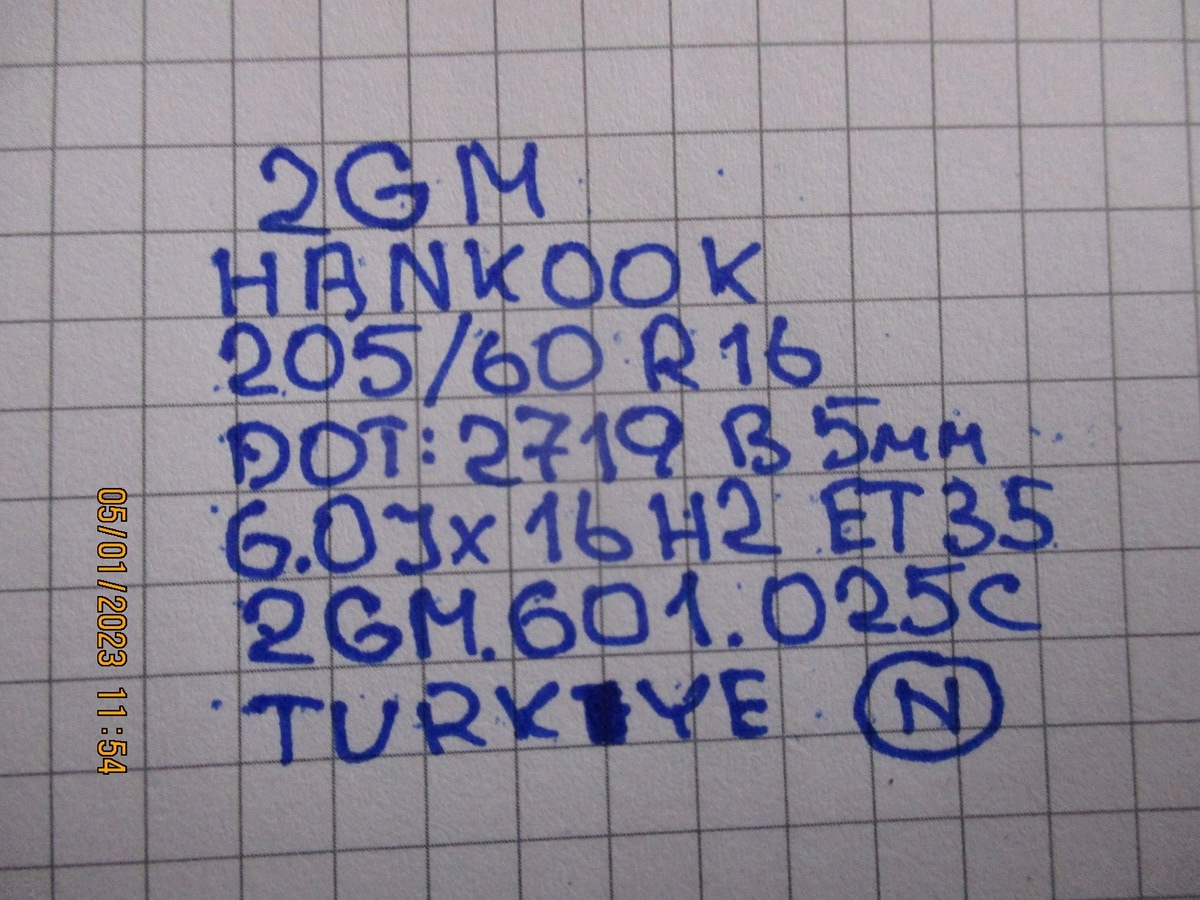 2GM
HANKOOK
205/60 R16
DOT: 2719 B 5мм
6.0Jx 16 H2 ET 35
2GM.601.025C
TURKIYE N
05/01/2023 11:54